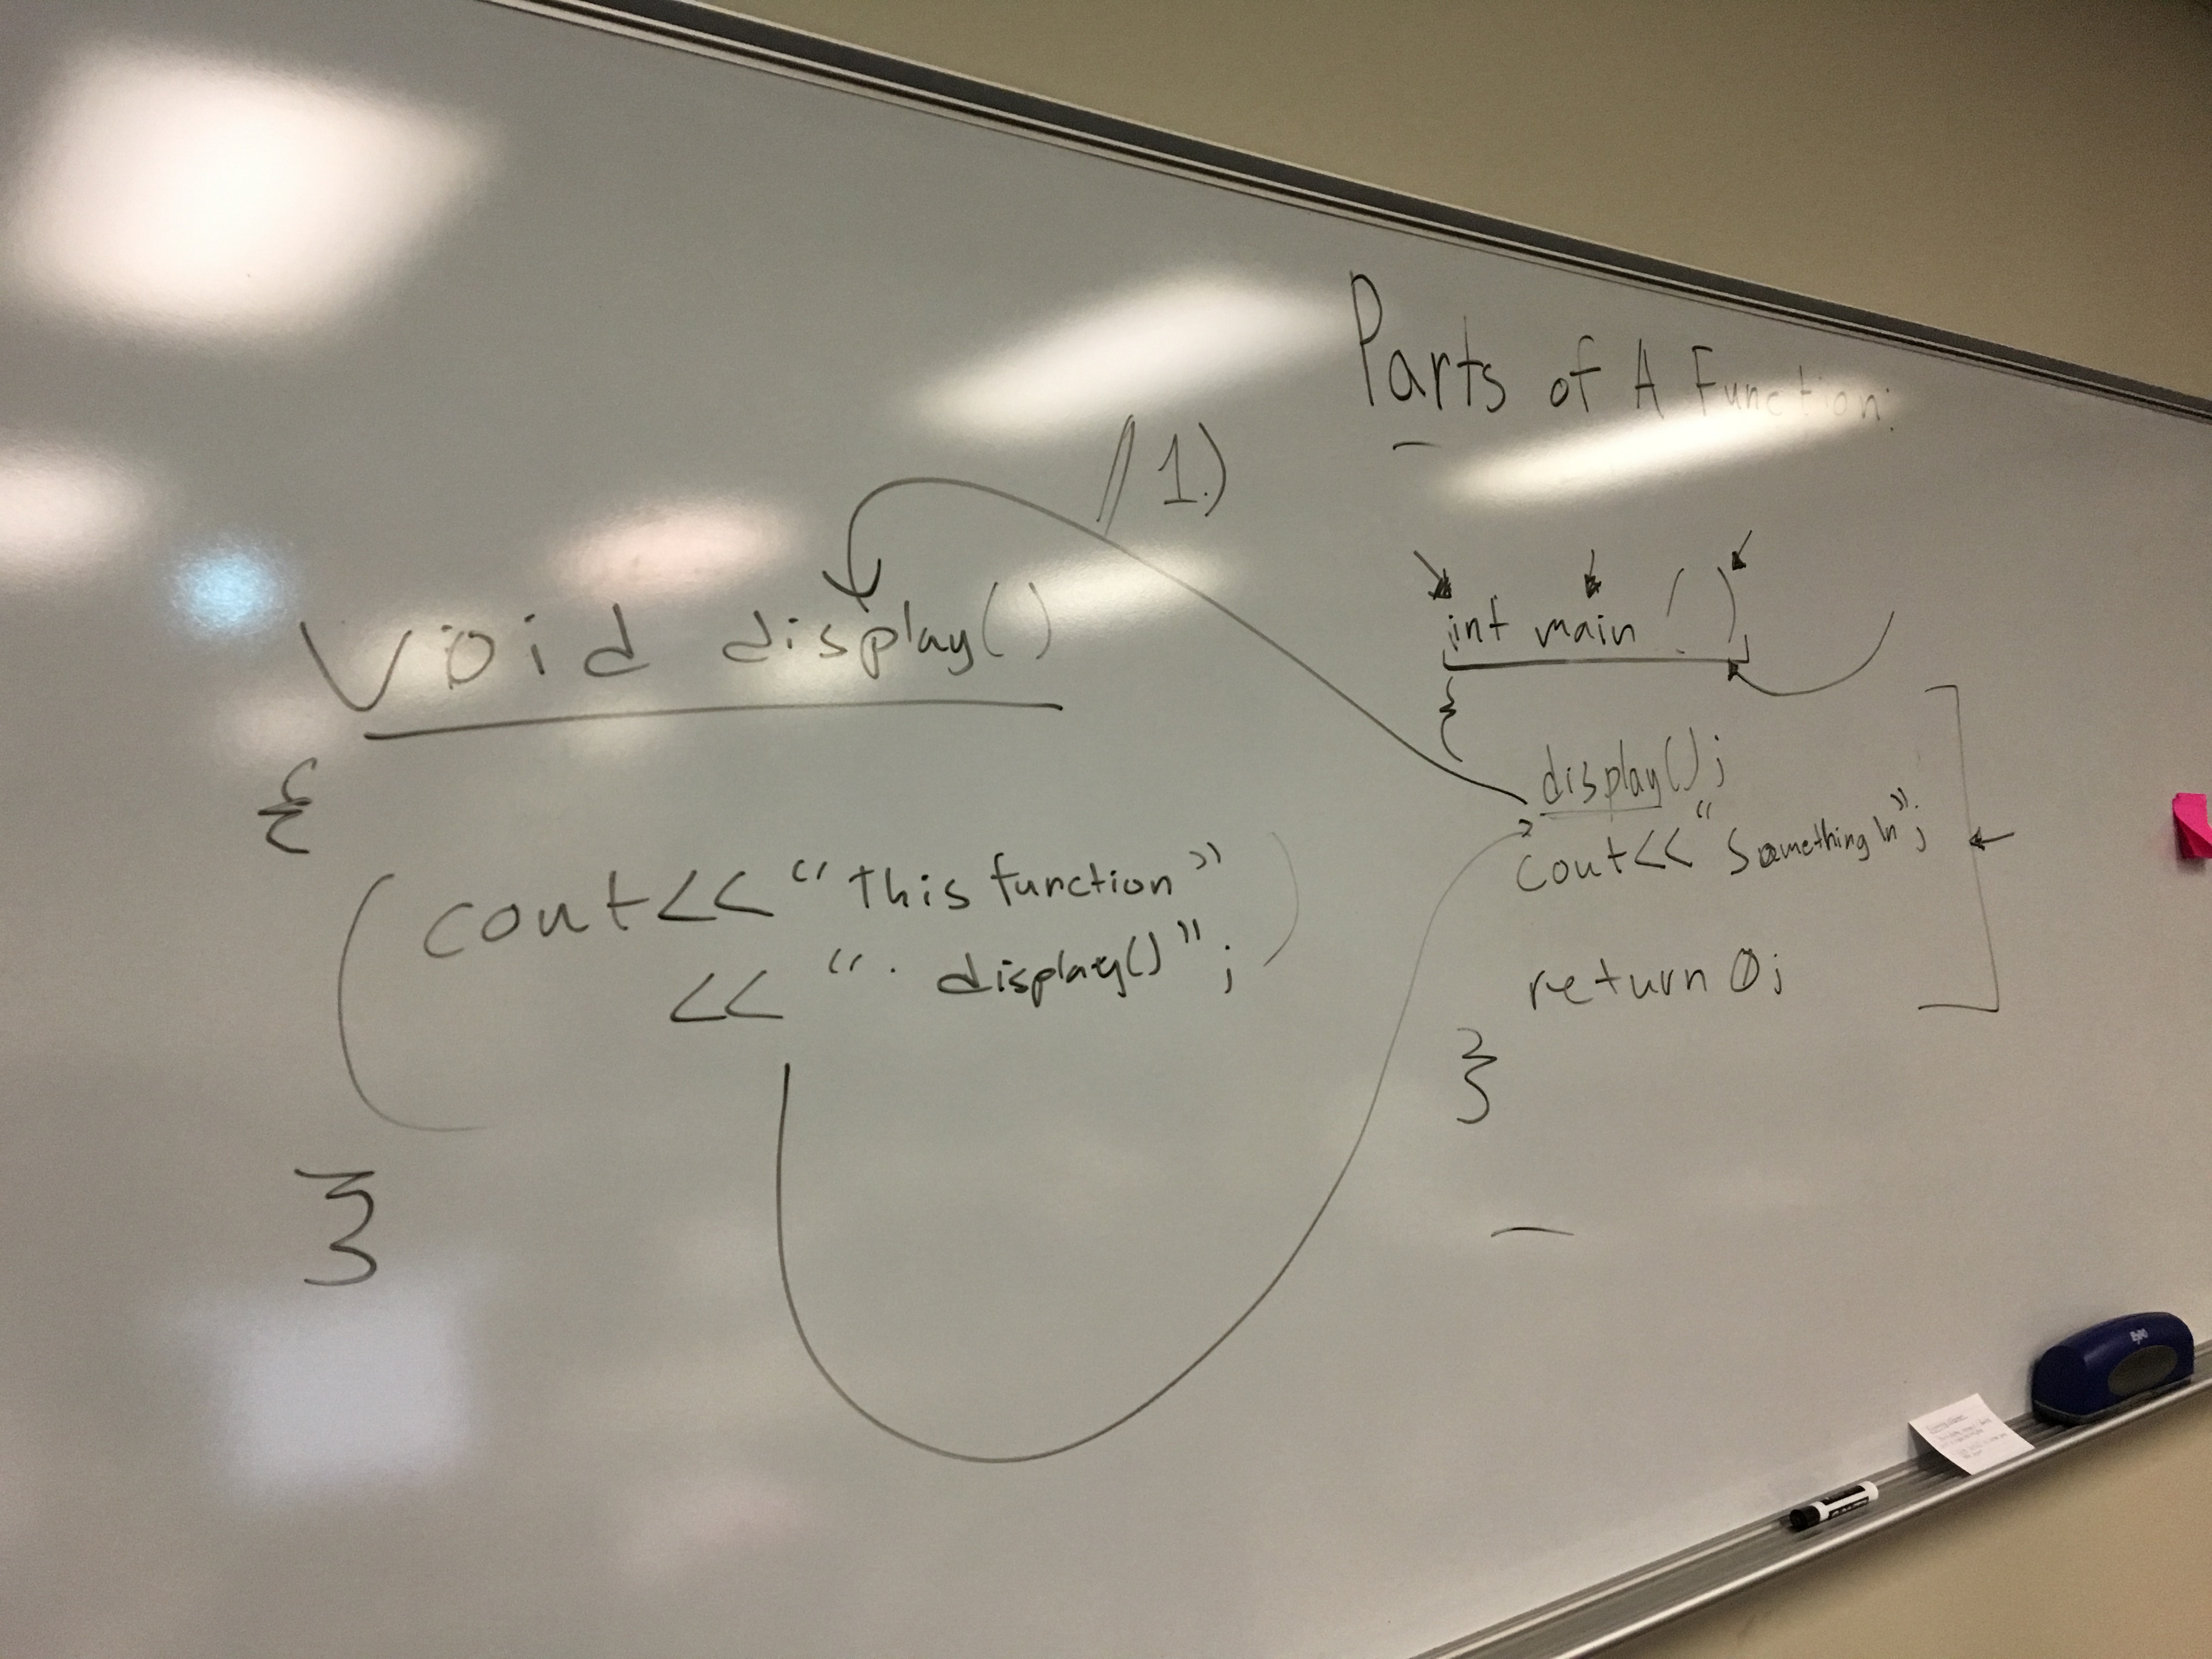 Parts of A Function:
//1.)
void display()
{
cout<<"This function"
<<". display()";
}
int main()
{
display();
cout<<"Something\n";
return 0;
}
Expo